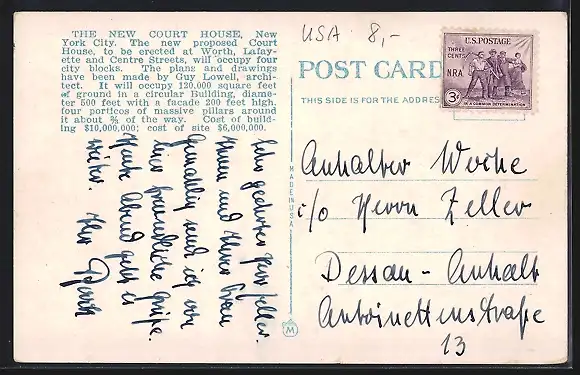 THE NEW COURT HOUSE, New
York City. The new proposed Court
House, to be erected at Worth, Lafay-
ette and Centre Streets, will occupy four
city blocks. The plans and drawings
have been made by Guy Lowell, archi-
tect. It will occupy 120,000 square feet
of ground in a circular Building, diame-
ter 500 feet with a facade 200 feet high.
four porticos of massive pillars around
it about ⅔ of the way. Cost of build-
ing $10,000,000; cost of site $6,000,000.
USA 8,-
POST CARD
THIS SIDE IS FOR THE ADDRES
U.S. POSTAGE
THREE
CENTS
NRA
3¢
IN A COMMON DETERMINATION
Sehr geehrter Herr Zeller.
Ihnen und Ihrer Frau
Gemahlin sende ich von
hier freundliche Grüße.
Heute Abend geht es
weiter. Ihr
MADE IN USA
M
Anhalter Woche
c/o Herrn Zeller
Dessau - Anhalt
Antoinettenstraße
13